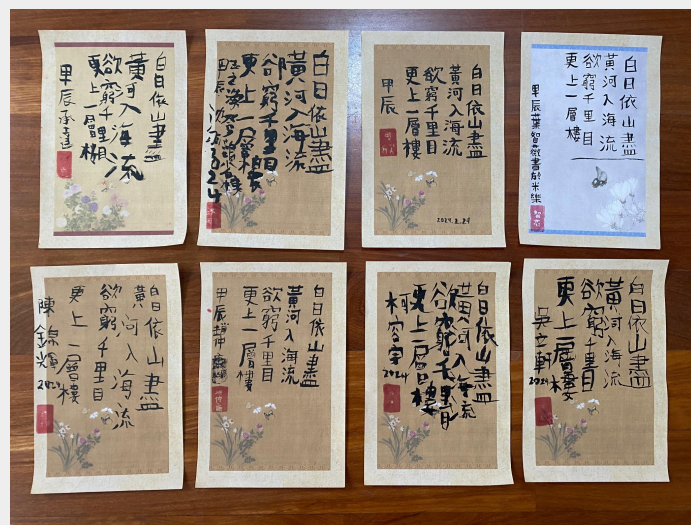 白日依山盡
黃河入海流
欲窮千里目
更上一層樓
甲辰承達
白日依山盡
黃河入海流
欲窮千里目
更上一層樓
甲辰
白日依山盡
黃河入海流
欲窮千里目
更上一層樓
甲辰
2024.2.24
白日依山盡
黃河入海流
欲窮千里目
更上一層樓
甲辰葉智薇書於米樂
白日依山盡
黃河入海流
欲窮千里目
更上一層樓
陳錦輝
白日依山盡
黃河入海流
欲窮千里目
更上一層樓
甲辰趙坤
白日依山盡
黃河入海流
欲窮千里目
更上一層樓
柯容宇
2024
白日依山盡
黃河入海流
欲窮千里目
更上一層樓
吳立軒
2024